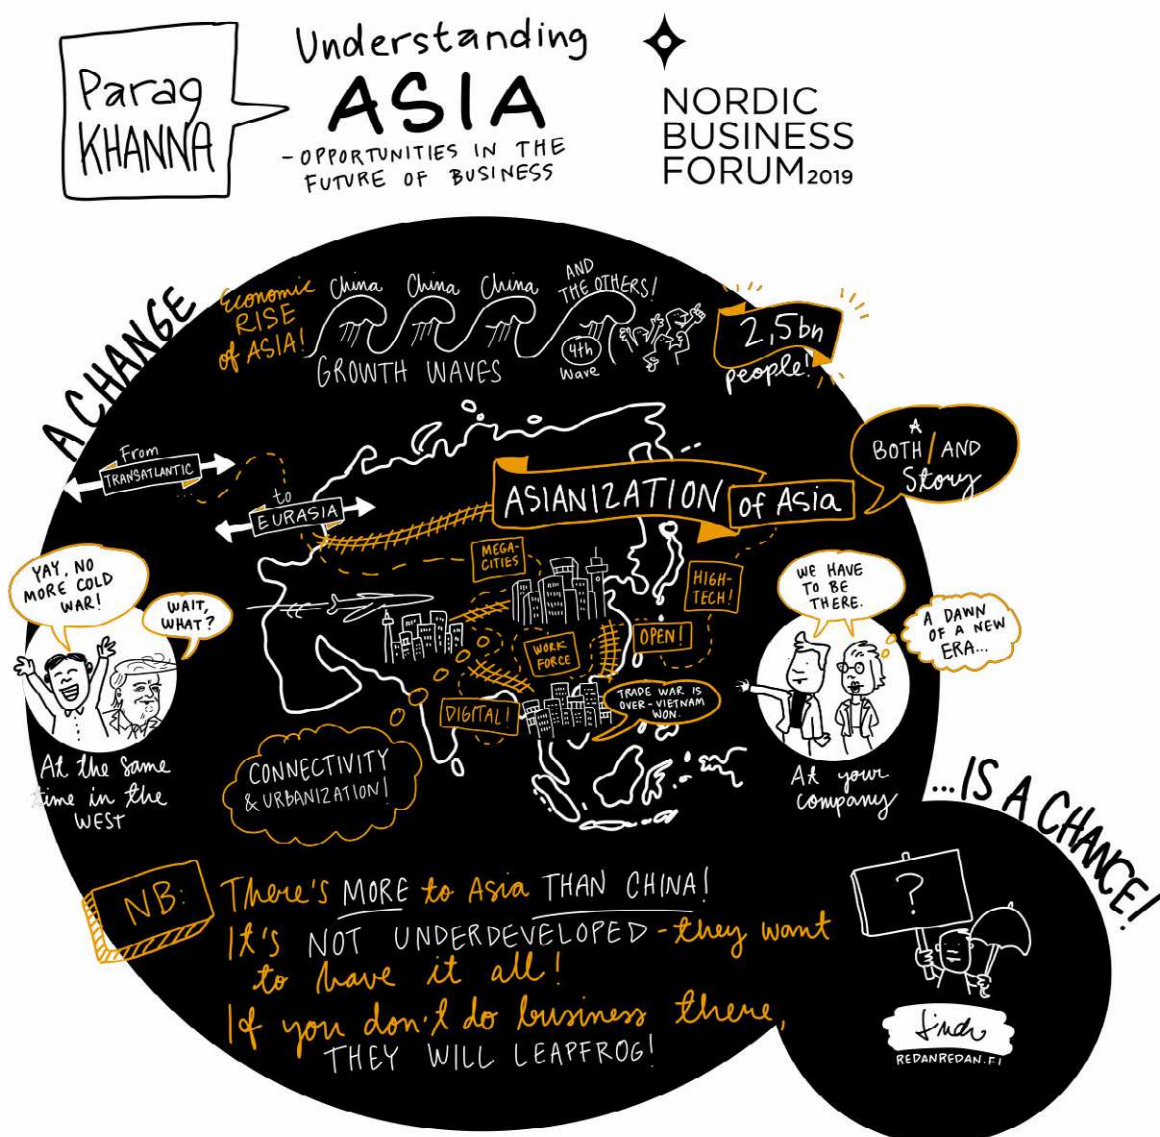 Parag
KHANNA
Understanding
ASIA
- OPPORTUNITIES IN THE
FUTURE OF BUSINESS
NORDIC
BUSINESS
FORUM 2019
A CHANGE
Economic
RISE
of ASIA!
China
China
China
AND
THE OTHERS!
GROWTH WAVES
4th
Wave
2,5bn
people!
From
TRANSATLANTIC
to
EURASIA
ASIANIZATION
of Asia
A
BOTH/AND
Story
YAY, NO
MORE COLD
WAR!
WAIT,
WHAT?
At the same
time in the
WEST
MEGA-
CITIES
HIGH-
TECH!
WORK
FORCE
OPEN!
DIGITAL!
TRADE WAR IS
OVER - VIETNAM
WON.
CONNECTIVITY
& URBANIZATION!
WE HAVE
TO BE
THERE.
A DAWN
OF A NEW
ERA...
At your
company
...IS A CHANCE!
NB:
There's MORE to Asia THAN CHINA!
It's NOT UNDERDEVELOPED - they want
to have it all!
If you don't do business there,
THEY WILL LEAPFROG!
?
REDANREDAN.FI